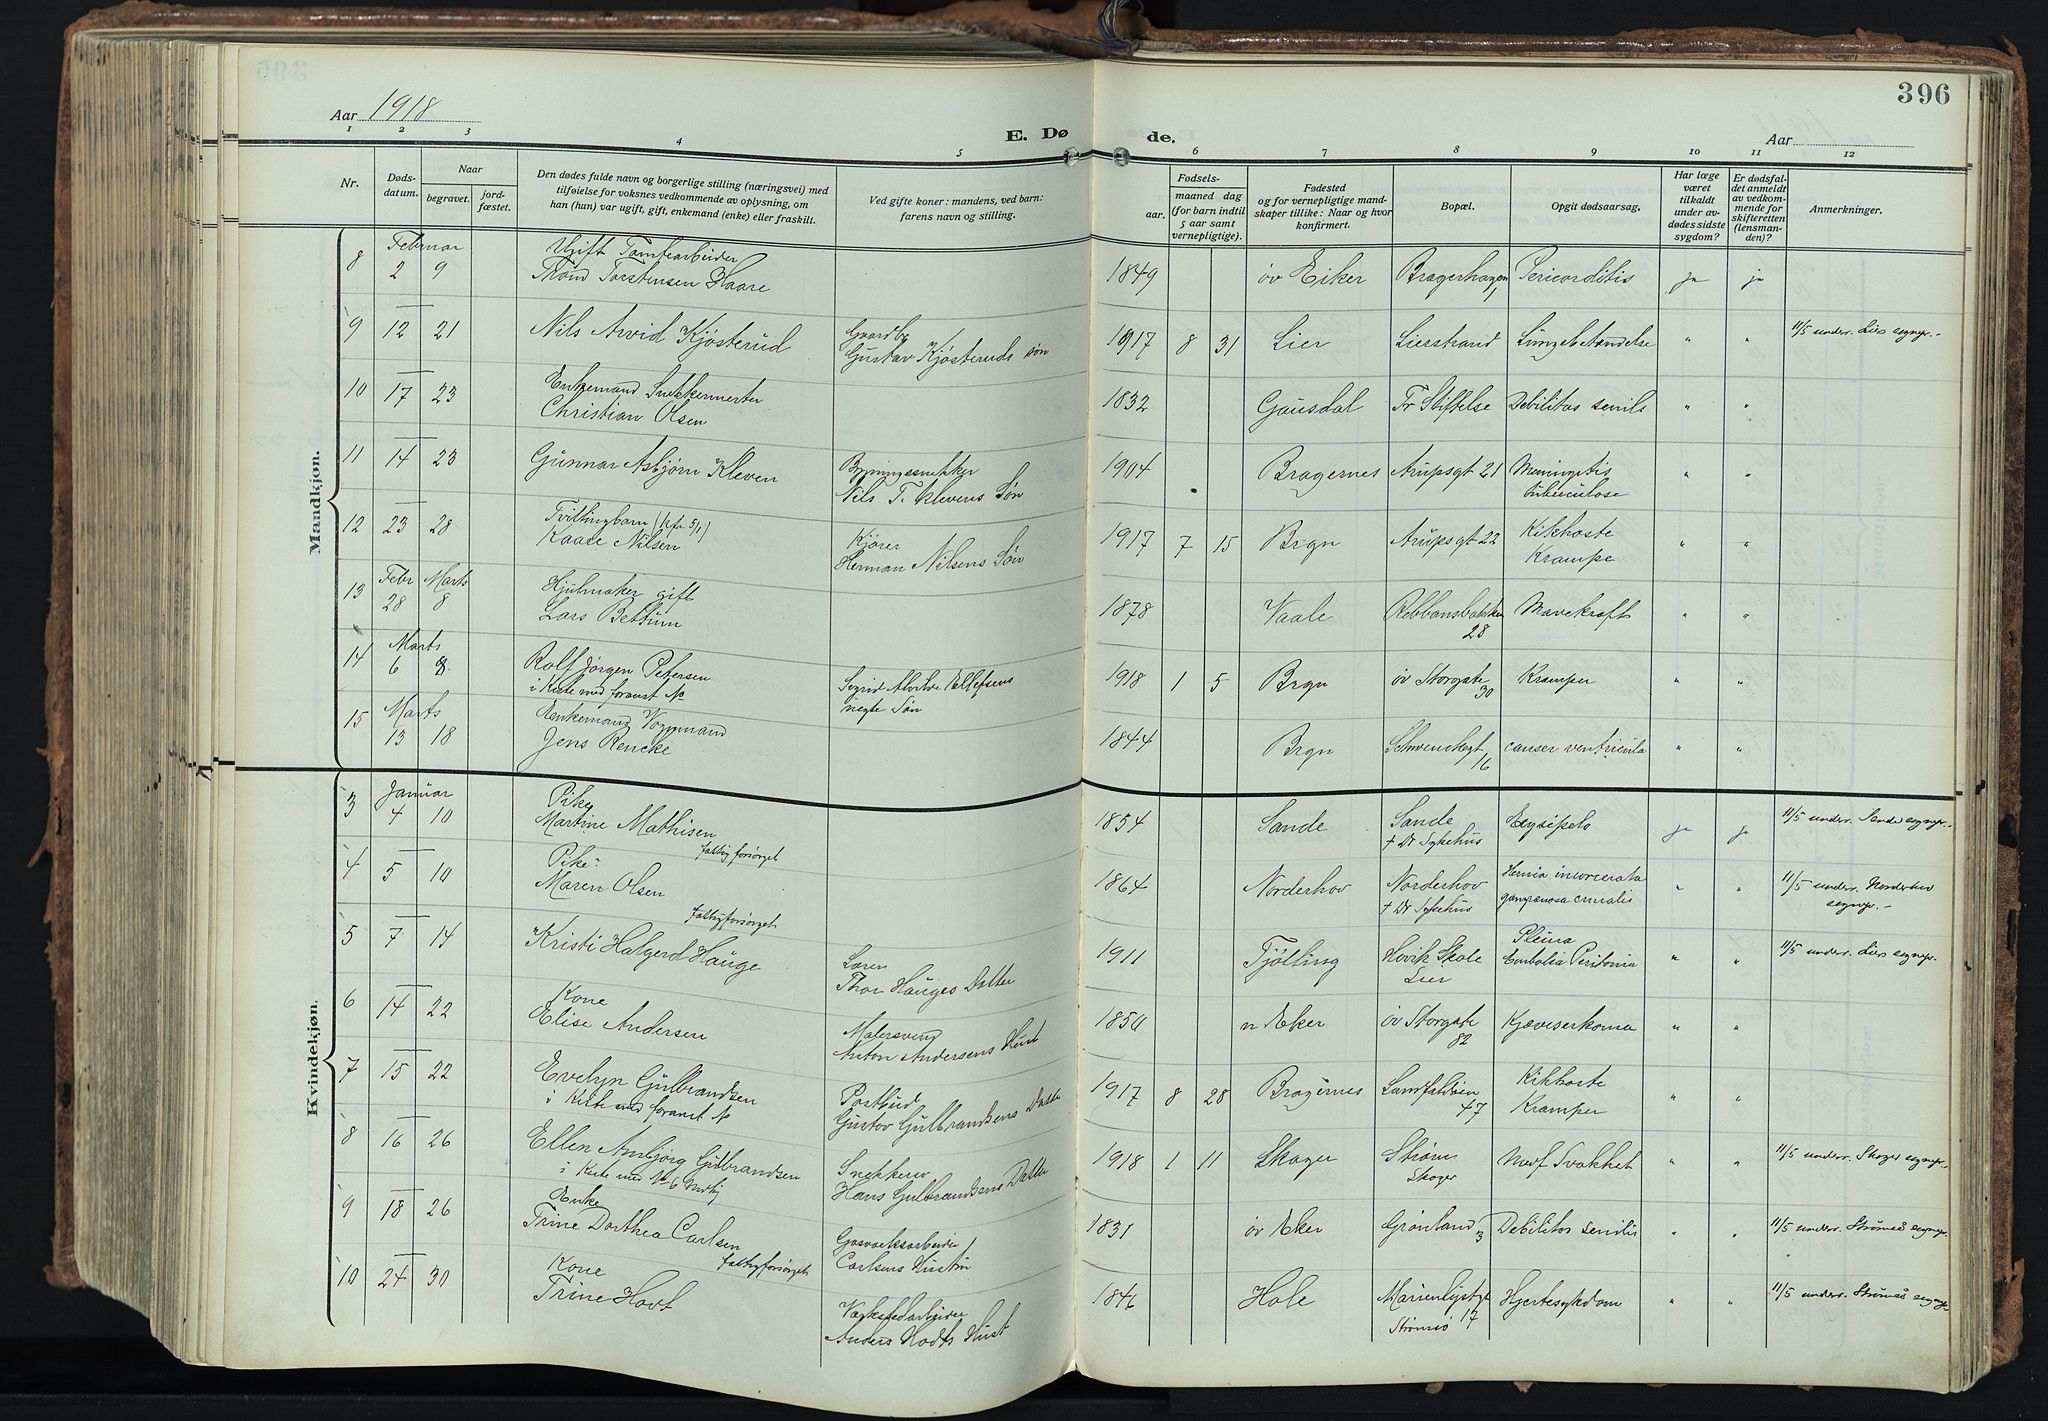 396
Aar 1918
E. Dø
de.
Aar
1 2 3 4 5 6 7 8 9 10 11 12
Nr.
Døds-
datum.
Naar
begravet.
jord-
fæstet.
Den dødes fulde navn og borgerlige stilling (næringsvei) med
tilføielse for voksnes vedkommende av oplysning, om
han (hun) var ugift, gift, enkemand (enke) eller fraskilt.
Ved gifte koner: mandens, ved barn:
farens navn og stilling.
Fødsels-
aar.
maaned dag
(for barn indtil
5 aar samt
vernepligtige).
Fødested
og for vernepligtige mand-
skaper tillike: Naar og hvor
konfirmert.
Bopæl.
Opgit dødsaarsag.
Har læge
været
tilkaldt
under av-
dødes sidste
sygdom?
Er dødsfal-
det anmeldt
av vedkom-
mende for
skifteretten
(lensman-
den)?
Anmerkninger.
Mandkjøn.
8 Februar 2 9 Ugift Tomtearbeider
Trond Torstensen Haare 1849 øv Eiker Bragerhagen 1 Pericorditis ja ja
9 12 21 Nils Arvid Kjøsterud Gaardbr
Gustav Kjøsteruds søn 1917 8 31 Lier Lierstrand Lungebetændelse " " 11/5 underr. Liers sognepr.-
10 17 23 Enkemand Snekkermester
Christian Olsen 1832 Gausdal Tr Stiftelse Debilitas senils " "
11 14 23 Gunnar Asbjørn Kleven Bygningssnekker
Nils T. Klevens Søn 1904 Bragernes Arupsgt 21 Meningitis
tuberculose " "
12 23 28 Tvillingbarn (kfr 5/1)
Kaare Nilsen Kjører
Herman Nilsens Søn 1917 7 15 Brgn Arupsgt 22 Kikhoste
Krampe " "
13 Febr 28 Marts 8 Hjulmaker gift
Lars Bettum 1878 Vaale 28 Mavekræft " "
14 Marts 6 8. Rolf Jørgen Petersen
i Kiste med foranst No Sigrid Ellefsens
uegte Søn 1918 1 5 Brgn øv Storgate
30 Kramper " "
15 Marts 13 18 Enkemand Vognmand
Jens Rencke 1844 Brgn Schwenckegt
16 cancer ventricula " "
Kvindekjøn.
3 Januar 4 10 Pike
Martine Mathisen
fattigforsørget 1854 Sande Sande
+ Dr Sykehus Erysipels ja ja 11/5 underr. Sande sognepr.-
4 5 10 Pike
Maren Olsen
fattigforsørget 1864 Norderhov Norderhov
+ Dr Sykehus Hernia incorcerata
gangrænosa cruralis " " 11/5 underr. Norderhov
sognepr.-
5 7 14 Kristi Halgerd Hauge Lærer
Thor Hauges Datter 1911 Tjølling Høvik Skole
Lier Pleura
Embolia Peritonia " " 11/5 underr. Liers sognepr.
6 14 22 Kone
Elise Andersen Malersvend
Anton Andersens Hust 1850 n Eker øv Storgate
82 " "
7 15 22 Evelyn Gulbrandsen
i Kiste med foranst No Postbud
Gustav Gulbrandsens Datter 1917 8 28 Bragernes Landfaldøen
47 Kikhoste
Kramper " "
8 16 26 Ellen Ambjørg Gulbrandsen
i Kiste med No 6 Snekkersv
Hans Gulbrandsens Datter 1918 1 11 Skoger Strøm
Skoger Medf Svakhet " " 11/5 underr. Skoger sognepr.
9 18 26 Enke
Trine Dorthea Carlsen
fattigforsørget Gasverksarbeider
Carlsens Hustru 1831 øv Eker Grønland 13 Debilitas senilis " " 11/5 underr. Strømsø sognepr.
10 24 30 Kone
Trine Hodt Verkstedarbeider
Anders Hodts Hust 1846 Hole Marienlystgt
17
Strømsø Hjertesykdom " " 11/5 underr. Strømsø sognepr.